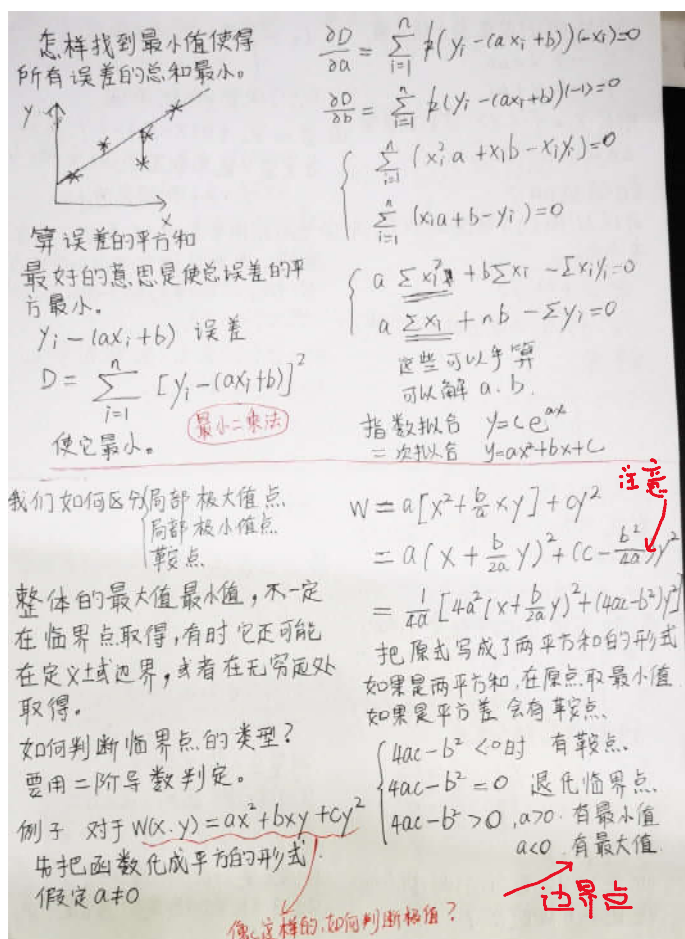 怎样找到最小值使得
所有误差的总和最小。
y
x
算误差的平方和
最好的意思是使总误差的平
方最小。
yi-(axi+b) 误差
D = ∑_{i=1}^{n} [yi-(axi+b)]²
最小二乘法
使它最小。
∂D/∂a = ∑_{i=1}^{n} 2(yi-(axi+b))(-xi)=0
∂D/∂b = ∑_{i=1}^{n} 2(yi-(axi+b))(-1)=0
∑_{i=1}^{n} (xi²a+xib-xiyi)=0
∑_{i=1}^{n} (xia+b-yi)=0
a ∑xi² + b∑xi - ∑xiyi=0
a ∑xi + nb - ∑yi=0
这些可以手算
可以解 a.b.
指数拟合 y=ce^{ax}
二次拟合 y=ax²+bx+c
我们如何区分局部极大值点
局部极小值点
鞍点
整体的最大值最小值,不一定
在临界点取得,有时它还可能
在定义域边界,或者在无穷远处
取得。
如何判断临界点的类型?
要用二阶导数判定。
例子 对于W(x.y)=ax²+bxy+cy²
先把函数化成平方的形式.
假定a≠0
像这样的,如何判断极值?
注意
W=a[x²+b/a xy]+cy²
=a(x+b/2a y)²+(c-b²/4a)y²
=1/4a [4a²(x+b/2a y)²+(4ac-b²)y²]
把原式写成了两平方和的形式
如果是两平方和,在原点取最小值
如果是平方差 会有鞍点.
4ac-b²<0时 有鞍点.
4ac-b²=0 退化临界点.
4ac-b²>0 ,a>0.有最小值
a<0.有最大值.
边界点